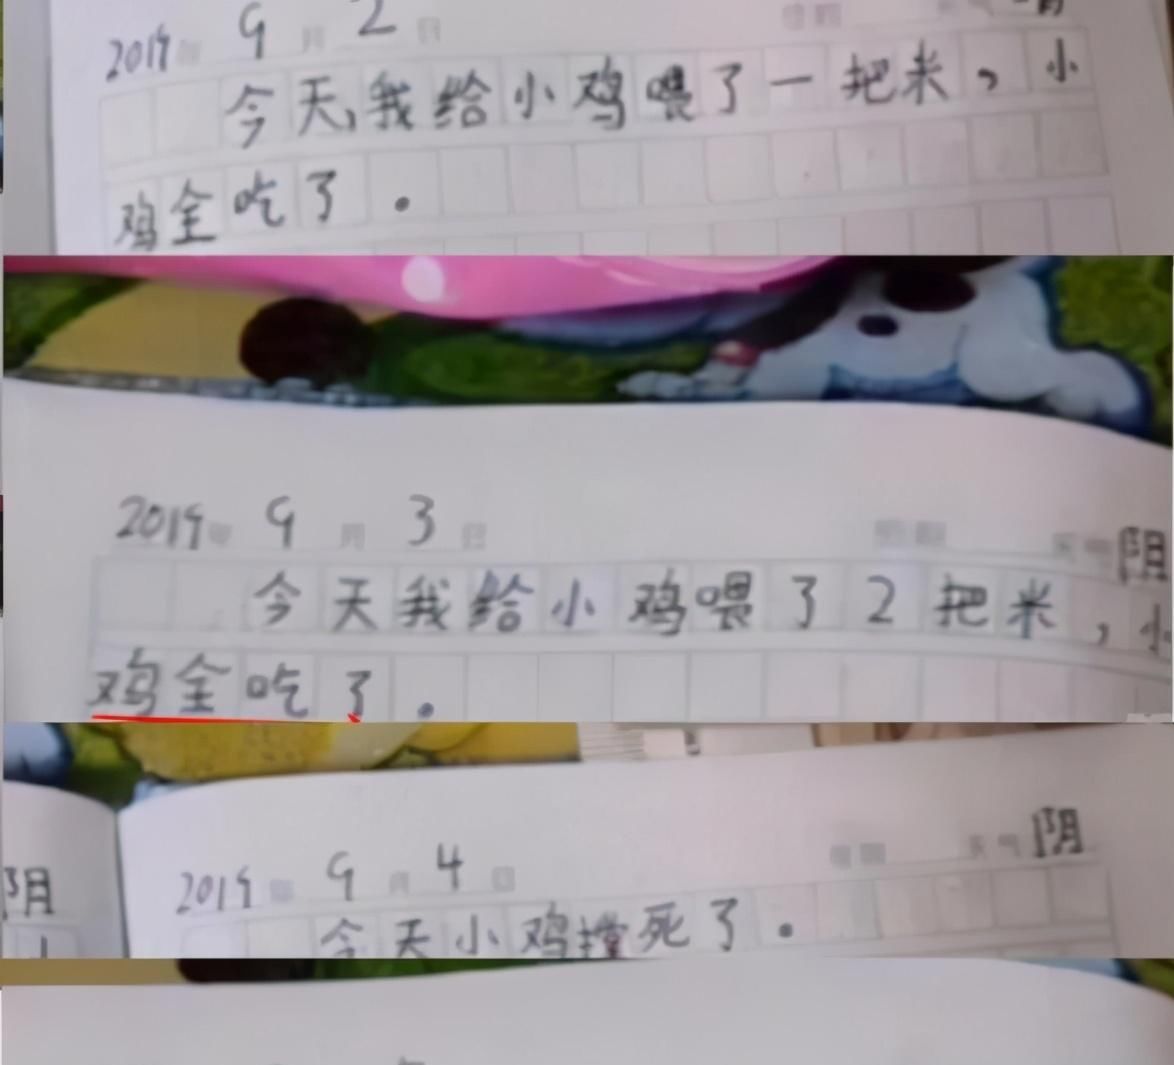 2019年 9月 2日 星期 天气 晴
今天,我给小鸡喂了一把米,小
鸡全吃了。
2019年 9月 3日 星期 天气 阴
今天我给小鸡喂了2把米,小
鸡全吃了。
阴
2019年 9月 4日 星期 天气 阴
今天小鸡撑死了。